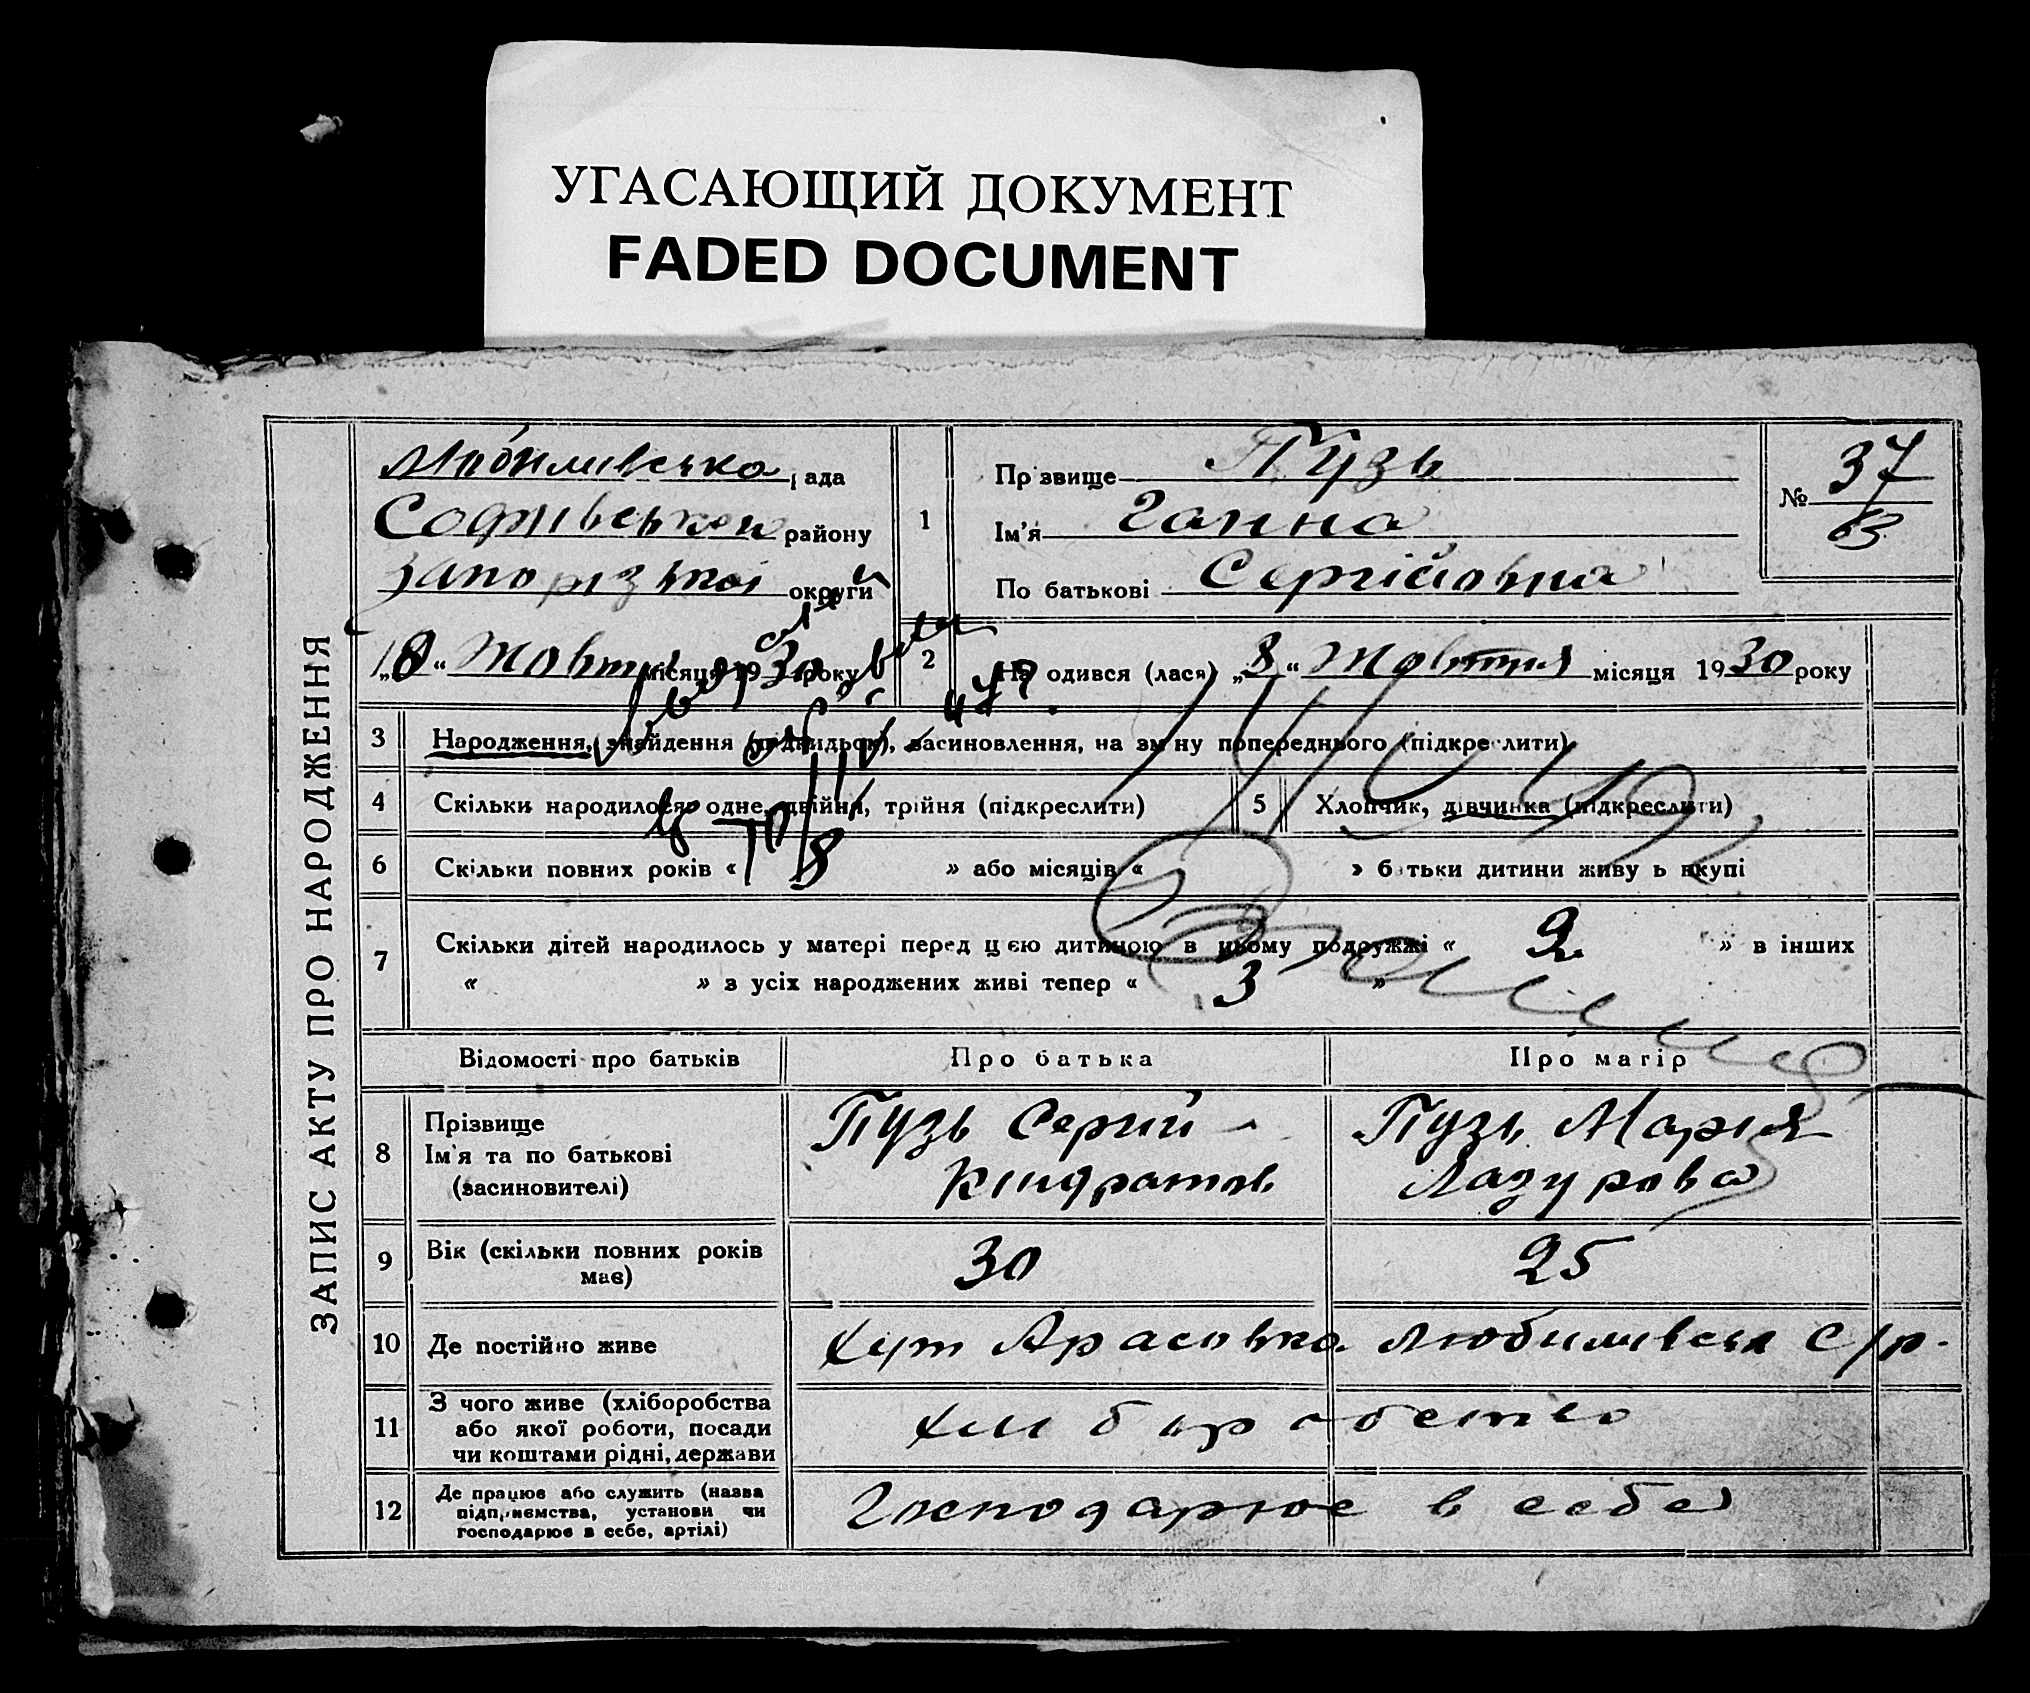 УГАСАЮЩИЙ ДОКУМЕНТ
FADED DOCUMENT
ЗАПИС АКТУ ПРО НАРОДЖЕННЯ
рада
району
округи
1
Прізвище Пузь
Ім'я Ганна
По батькові Сергійовна
№ 37
„ “ місяця 1930 року
2
Народився (лася) „8“ Жовтня місяця 1930 року
3 Народження, знайдення (підкидьок), засиновлення, на зміну попереднього (підкреслити)
4 Скільки народилося: одне, двійня, трійня (підкреслити)
5 Хлопчик, дівчинка (підкреслити)
6 Скільки повних років « » або місяців « » батьки дитини живуть вкупі
7 Скільки дітей народилось у матері перед цією дитиною в цьому подружжі « 2 » в інших
« » з усіх народжених живі тепер « 3 »
Відомості про батьків Про батька Про матір
8 Прізвище
Ім'я та по батькові
(засиновителі)
Пузь Сергій
Кіндратов.
Пузь Марія
9 Вік (скільки повних років
має)
30 25
10 Де постійно живе
хут Любимівськ с/р.
11 З чого живе (хліборобства
або якої роботи, посади
чи коштами рідні, держави
хліборобство
12 Де працює або служить (назва
підприємства, установи чи
господарює в себе, артілі)
Господарює в себе